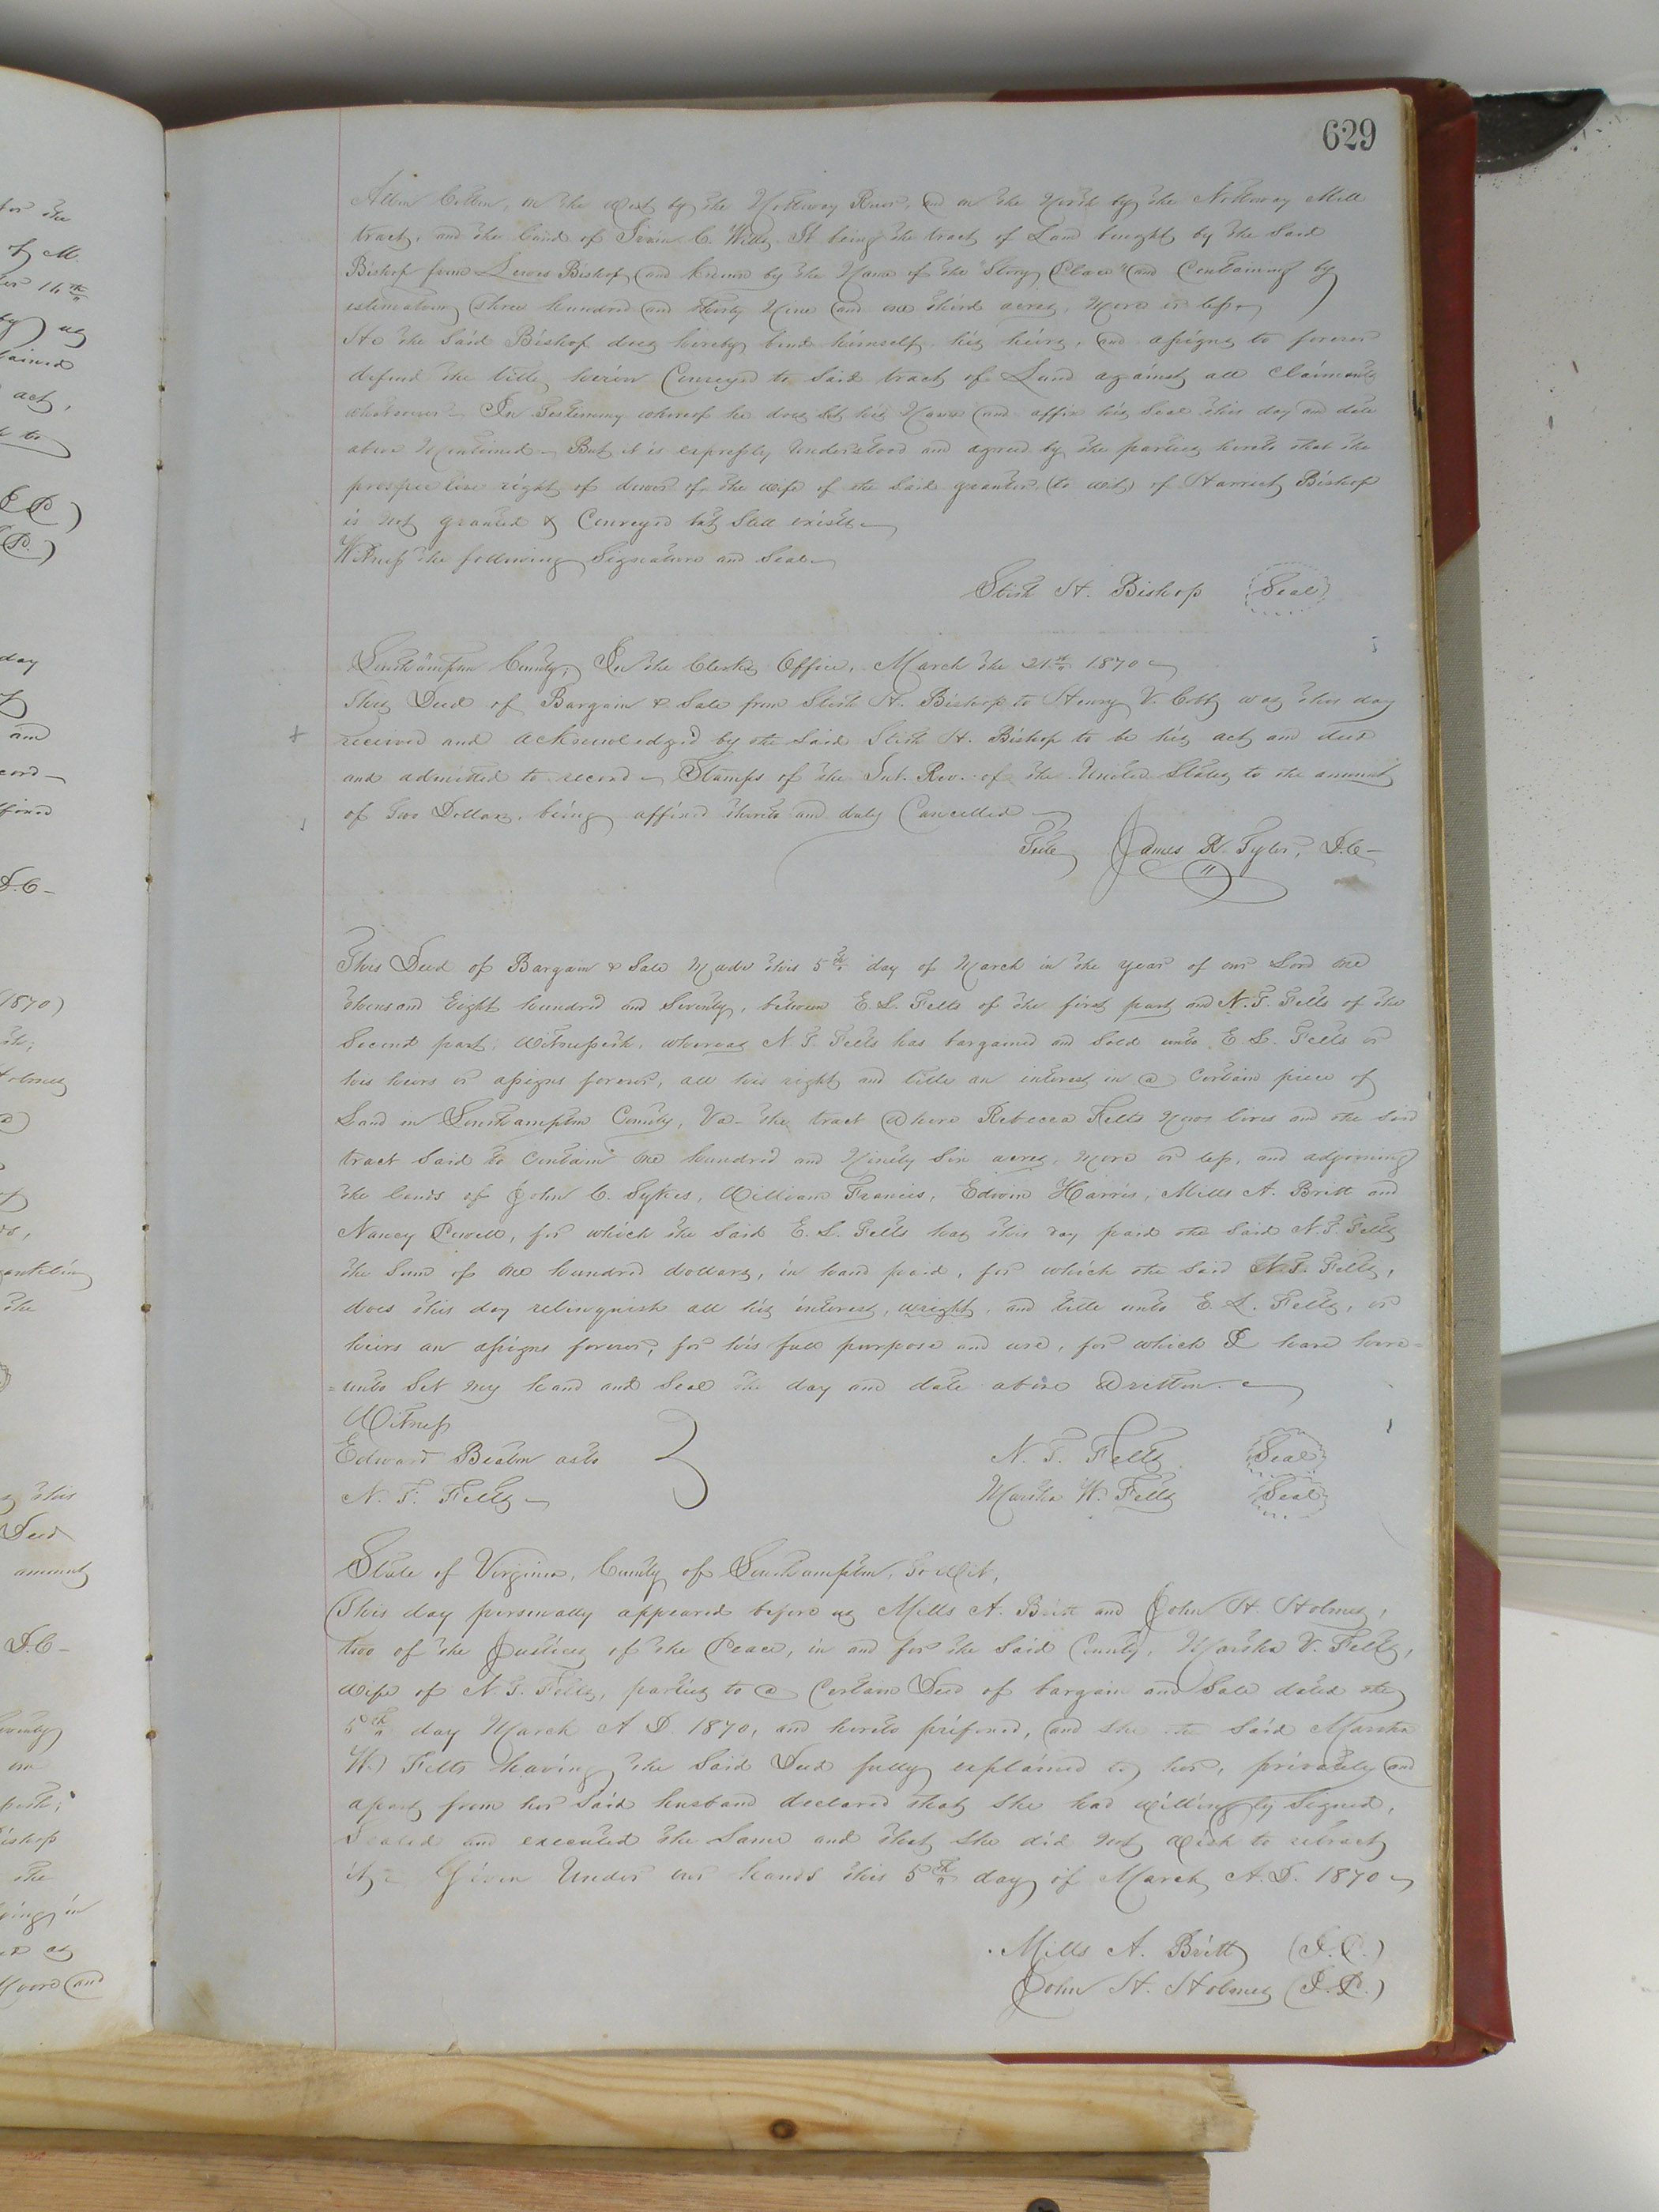 629
Cotten, on the West by the Nottoway River, and on the North by the Nottoway Mill
tract, and the land of C. Wills. It being the tract of Land bought by the Said
Bishop from Lewis Bishop, and known by the Name of the "Story Place" and Containing by
estimation, three hundred and thirty Nine and one third acres, More or less,
the Said Bishop does hereby bind himself his heirs, and assigns to forever
defend the title herein Conveyed to Said tract of Land against all Claimants
whatsoever. In Testimony whereof he does Set his Name and affix his Seal this day and date
above Mentioned. But it is expressly Understood and agreed by the parties hereto that the
prospective right of dower of the wife of the Said grantor, (to wit) of Harriet Bishop
is Not granted & Conveyed but Still exists.
Witness the following Signature and Seal
Stith H. Bishop Seal
Southampton County; In the Clerks Office, March the 21st 1870
This Deed of Bargain & Sale from Stith H. Bishop to Henry V. Cobb was this day
received and acknowledged by the Said Stith H. Bishop to be his act and deed
and admitted to record. Stamps of the Int. Rev. of the United States to the amount
of Two Dollars, being affixed thereto and duly Cancelled
Teste James R. Tyler, D.C-
This Deed of Bargain & Sale Made this 5th day of March in the year of our Lord One
thousand Eight hundred and Seventy, between E. L. Felts of the first part and N. T. Felts of the
Second part, Witnesseth, whereas N. T. Felts has bargained and Sold unto E. L. Felts or
his heirs or assigns forever, all his right and title an interest in a Certain piece of
Land in Southampton County, Va- the tract Where Rebecca Felts Now lives and the Said
tract Said to Contain One hundred and Ninety Six acres, More or less, and adjoining
the lands of John C. Sykes, William Francis, Edwin Harris, Mills A. Britt and
Nancy Powell, for which the Said E. L. Felts has this day paid the Said N. T. Felts
the Sum of One hundred dollars, in hand paid, for which the Said N. T. Felts,
does this day relinquish all his interest, wright, and title unto E. L. Felts, or
heirs an assigns forever, for his full purpose and use, for which I have here=
=unto Set My hand and Seal the day and date above Written.
Witness
Edward Beaton as to
N. T. Felts
N. T. Felts Seal
Martha W. Felts Seal
State of Virginia, County of Southampton, To Wit,
This day personally appeared before us Mills A. Britt and John H. Holmes,
two of the Justices of the Peace, in and for the Said County, Martha V. Felts,
Wife of N. T. Felts, parties to a Certain Deed of bargain and Sale dated the
5th day March A D. 1870, and hereto prefixed, and She the Said Martha
W. Felts having the Said Deed fully explained to her, privately and
apart from her Said husband declared that She had Willingly Signed,
Sealed and executed the Same and that She did Not Wish to retract
it. Given Under our hands this 5th day of March, A. D. 1870
Mills A. Britt (J. P.)
John H. Holmes (J. P.)